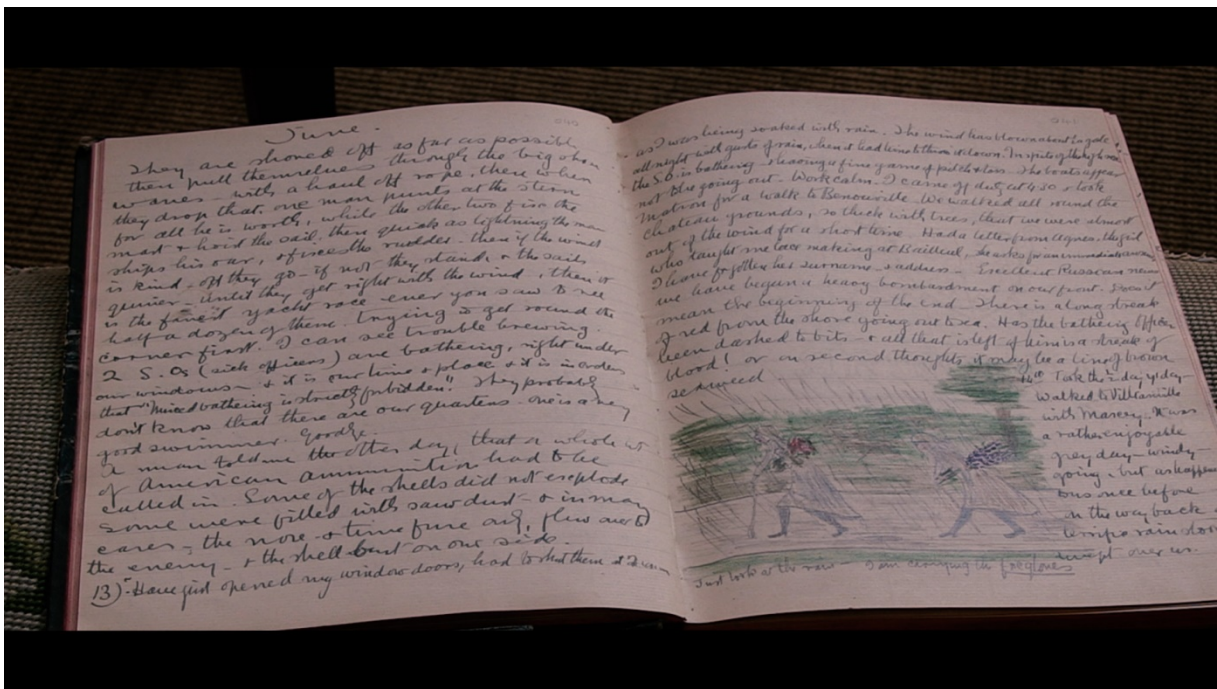 June.
They are shoved off as far as possible,
then pull themselves through the big ones
waves - with a haul off rope, there when
they drop that, one man punts at the stern
for all he is worth, while the other two fix the
mast + hoist the sail, then quick as lightning the man
ships his oar, + fixes the rudder - then if the wind
is kind - off they go - if not they stand, + the sails
quiver - until they get right with the wind, then it
is the finest yacht race ever you saw to see
half a dozen of them trying to get round the
corner first. I can see trouble brewing.
2 S.Os (sick officers) are bathing, right under
our windows - + it is our time + place + it is in orders
that "Mixed bathing is strictly forbidden". They probably
don't know that these are our quarters - one is a very
good swimmer. Goodbye.
A man told me the other day, that a whole lot
of American ammunition had to be
called in. Some of the shells did not explode
some were filled with sawdust - + in many
cases - the nose + time fuse only, flew over to
the enemy - + the shell burst on our side.
13) - Have just opened my window doors, had to shut them at 2 a.m.
as I was being soaked with rain. The wind has blown about to gale
all night with gusts of rain, when it had time to throw it down. In spite of
the S.O. is bathing + having a fine game of pitch + toss. The boats appear
not to be going out. Work calm. I came off duty at 4.30 + took
Matron for a walk to Benouville. We walked all round the
Chateau grounds, so thick with trees, that we were almost
out of the wind for a short time. Had a letter from Agnes, the girl
who taught me lace making at Bailleul, she asks for an immediate answer
I have forgotten her surname + address - Excellent Russian news
we have begun a heavy bombardment on our front. Does it
mean the beginning of the end. There is a long streak
of red from the shore going out to sea. Has the bathing officer
been dashed to bits - + all that is left of him is a streak of
blood! or on second thoughts it may be a line of brown
seaweed
14th Took the day
Walked to
with - It was
a rather enjoyable
grey day - windy
going, but as happened
to us once before
on the way back a
terrific rain storm
swept over us.
Just look at the rain I am carrying the foxgloves